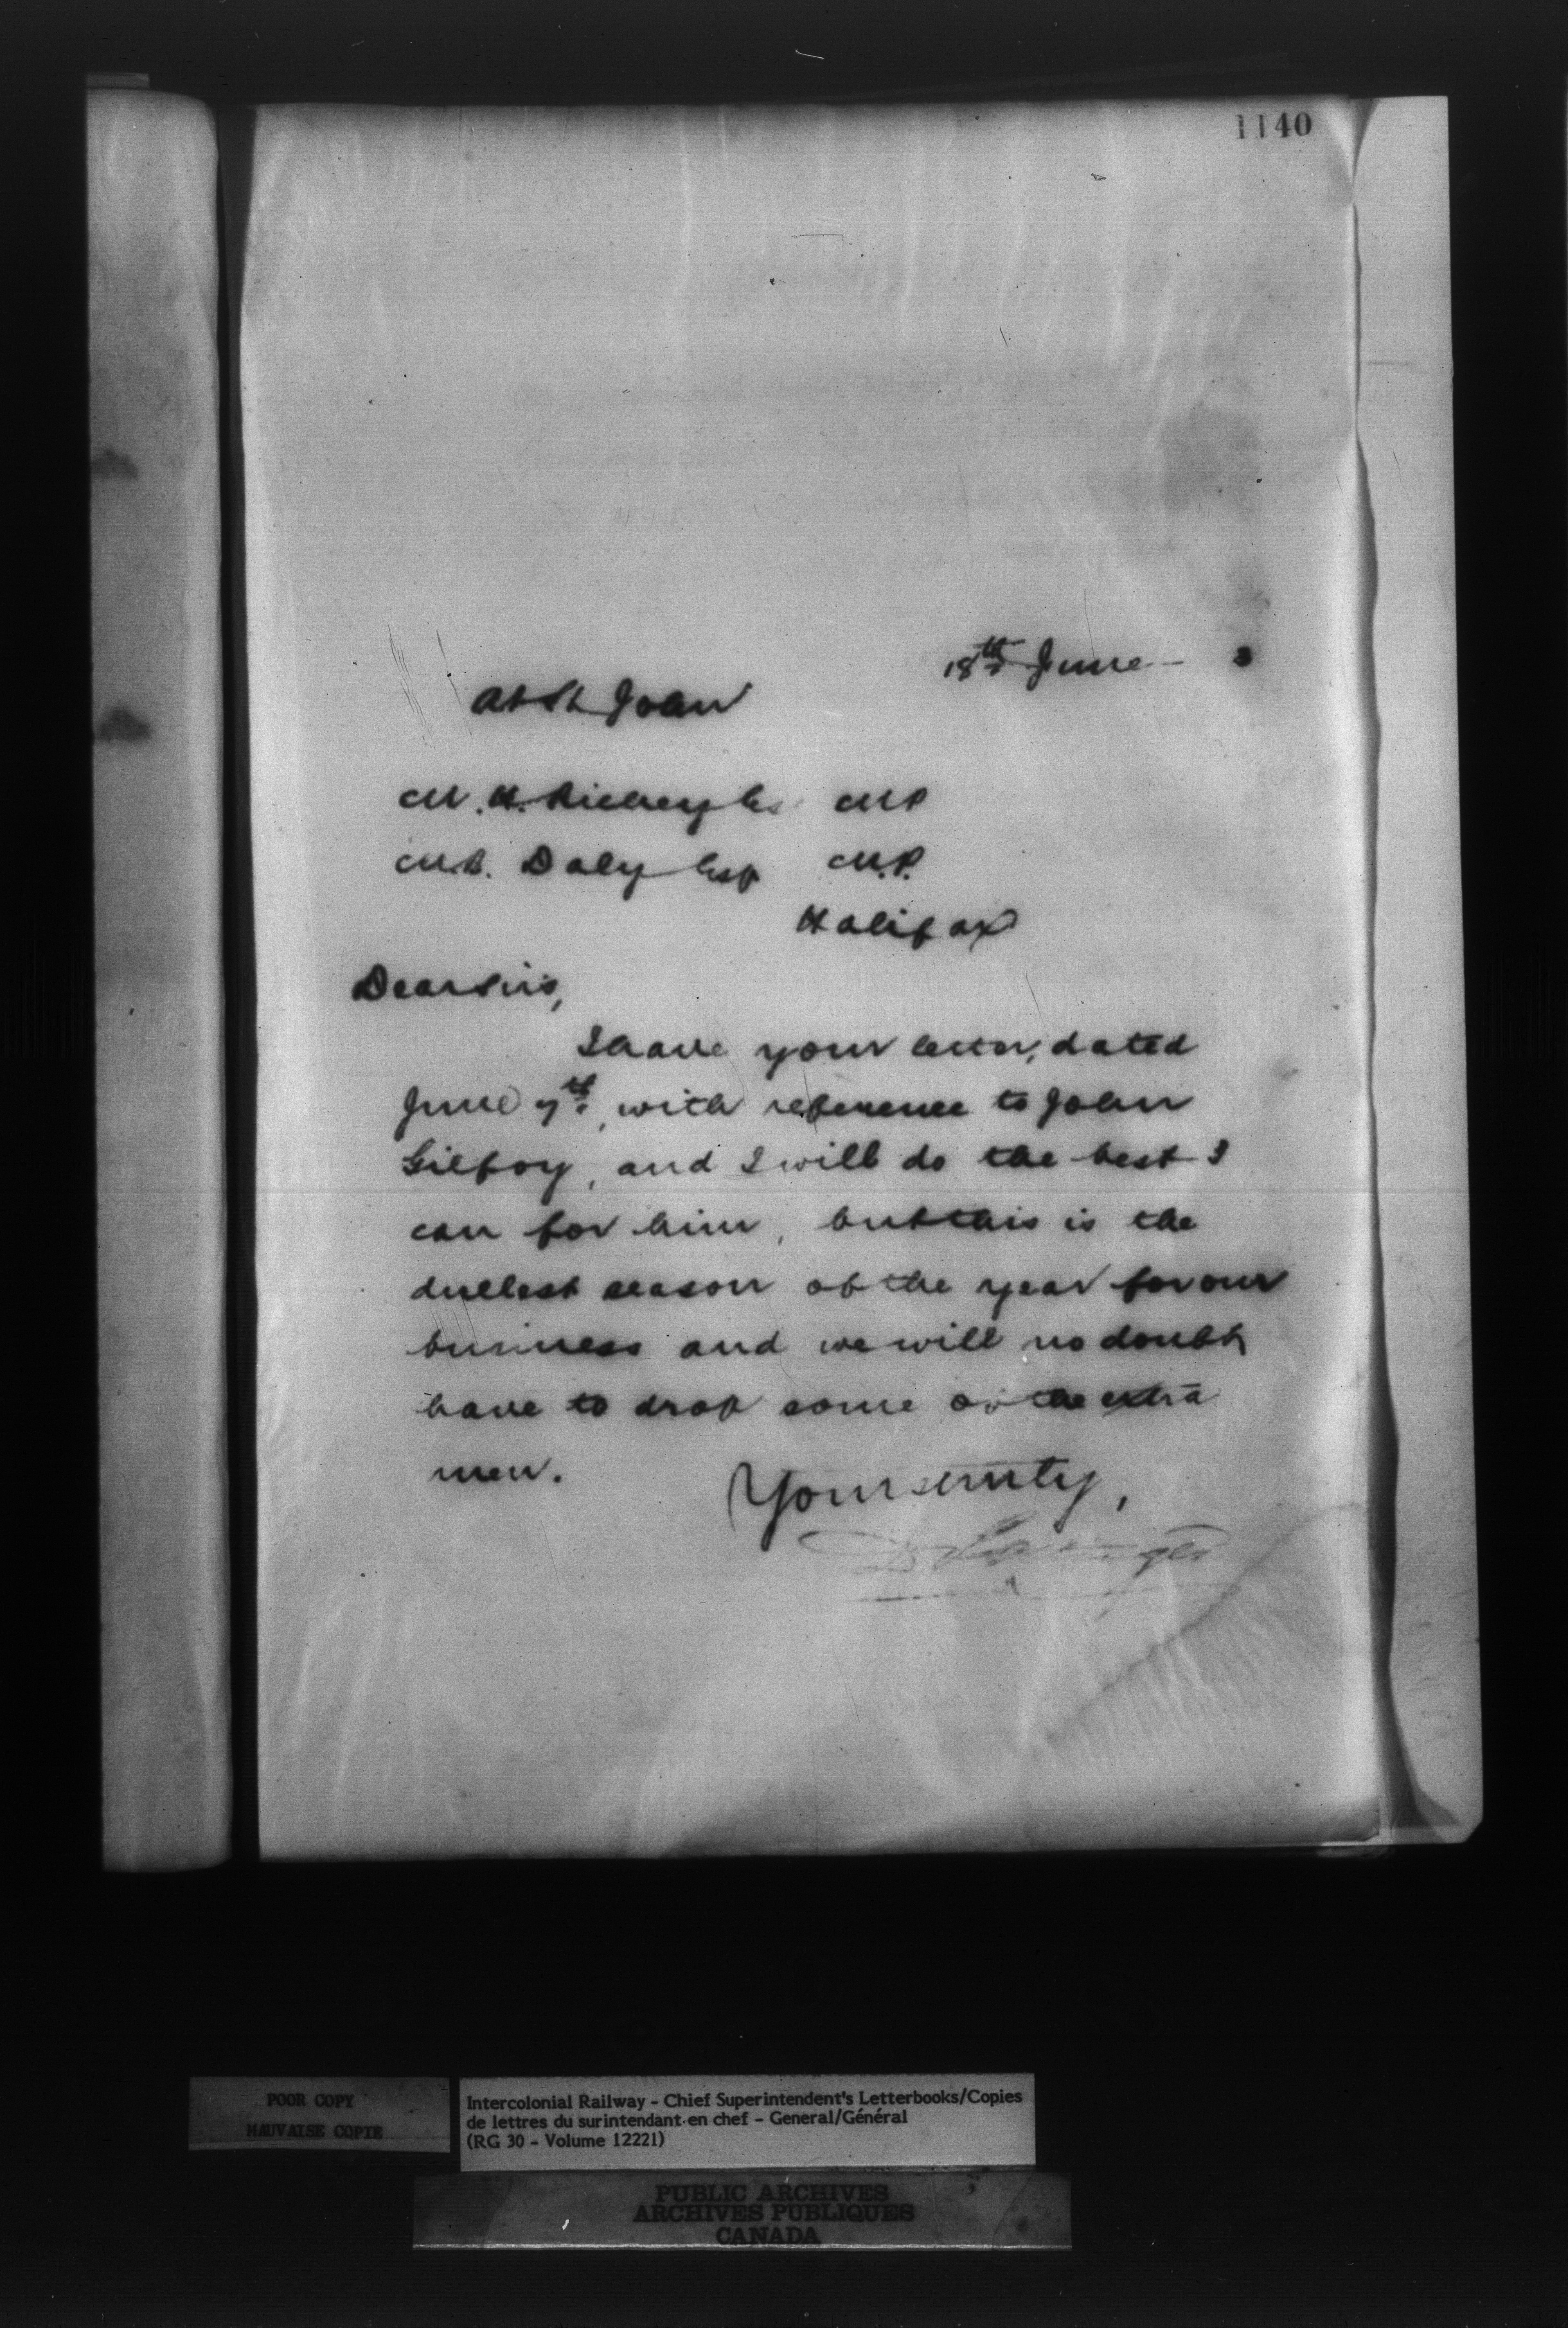 1140
18th June - 3
At St John
M. H. Richey Esq MP
M.B. Daly Esq M.P.
Halifax
Dear Sirs,
I have your letter, dated
June 7th, with reference to John
Gilfoy, and I will do the best I
can for him, but this is the
dullest season of the year for our
business and we will no doubt
have to drop some of the extra
men.
Yours truly,
POOR COPY
MAUVAISE COPIE
Intercolonial Railway - Chief Superintendent's Letterbooks/Copies
de lettres du surintendant en chef - General/Général
(RG 30 - Volume 12221)
PUBLIC ARCHIVES
ARCHIVES PUBLIQUES
CANADA